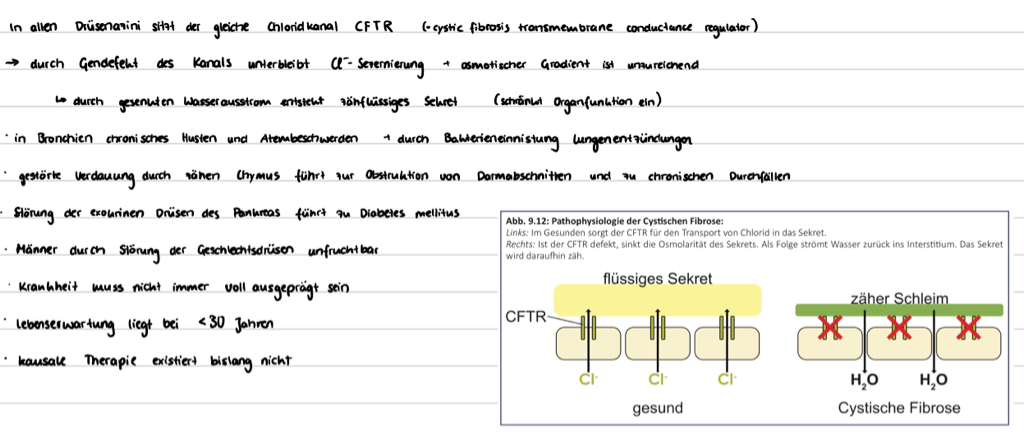 In allen Drüsenazini sitzt der gleiche Chloridkanal CFTR (=cystic fibrosis transmembrane conductance regulator)
→ durch Gendefekt des Kanals unterbleibt Cl⁻-Sezernierung → osmotischer Gradient ist unzureichend
↳ durch gesenkten Wasserausstrom entsteht zähflüssiges Sekret (schränkt Organfunktion ein)
· in Bronchien chronisches Husten und Atembeschwerden → durch Bakterieneinnistung Lungenentzündungen
· gestörte Verdauung durch zähen Chymus führt zur Obstruktion von Darmabschnitten und zu chronischen Durchfällen
· Störung der exokrinen Drüsen des Pankreas führt zu Diabetes mellitus
· Männer durch Störung der Geschlechtsdrüsen unfruchtbar
· Krankheit muss nicht immer voll ausgeprägt sein
· Lebenserwartung liegt bei <30 Jahren
· kausale Therapie existiert bislang nicht
Abb. 9.12: Pathophysiologie der Cystischen Fibrose:
Links: Im Gesunden sorgt der CFTR für den Transport von Chlorid in das Sekret.
Rechts: Ist der CFTR defekt, sinkt die Osmolarität des Sekrets. Als Folge strömt Wasser zurück ins Interstitium. Das Sekret
wird daraufhin zäh.
flüssiges Sekret
zäher Schleim
CFTR
Cl⁻ Cl⁻ Cl⁻
H₂O H₂O
gesund
Cystische Fibrose